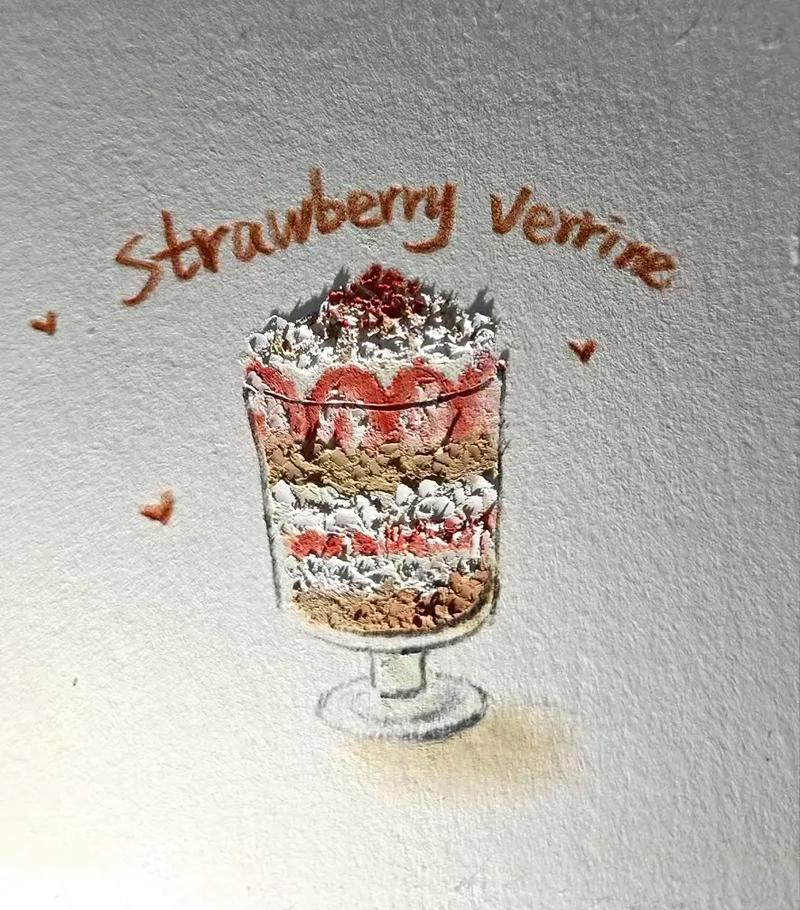 Strawberry Verrine